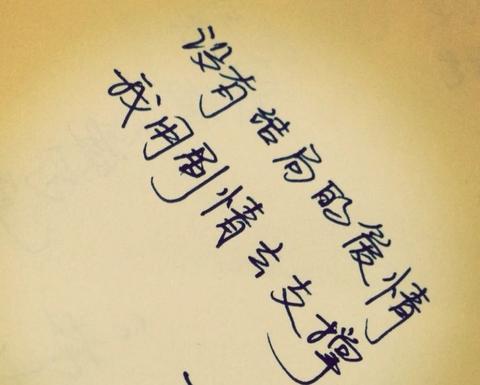 没有结局的爱情
我用剧情去支撑